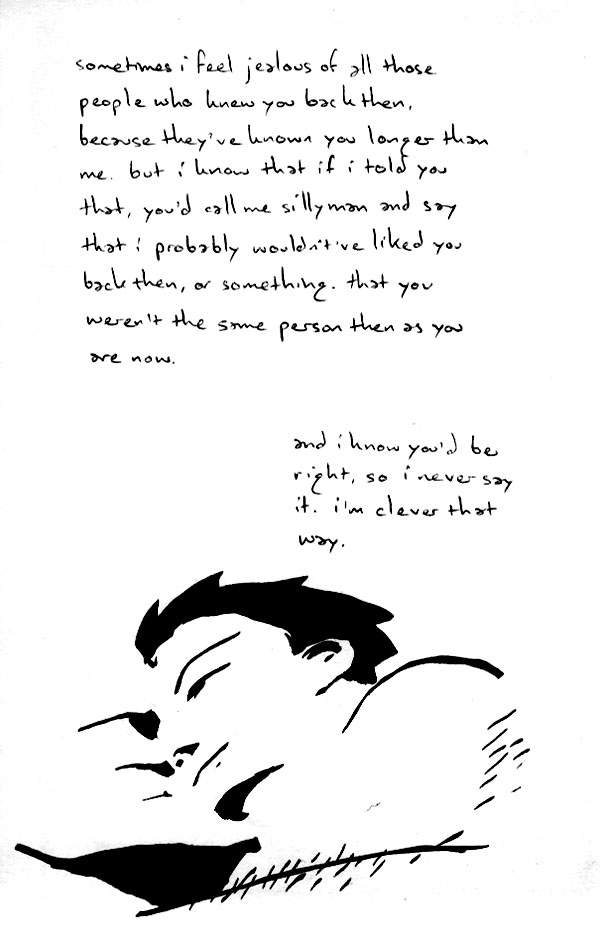 sometimes i feel jealous of all those
people who knew you back then,
because they've known you longer than
me. but i know that if i told you
that, you'd call me sillyman and say
that i probably wouldn't've liked you
back then, or something. that you
weren't the same person then as you
are now.
and i know you'd be
right, so i never say
it. i'm clever that
way.